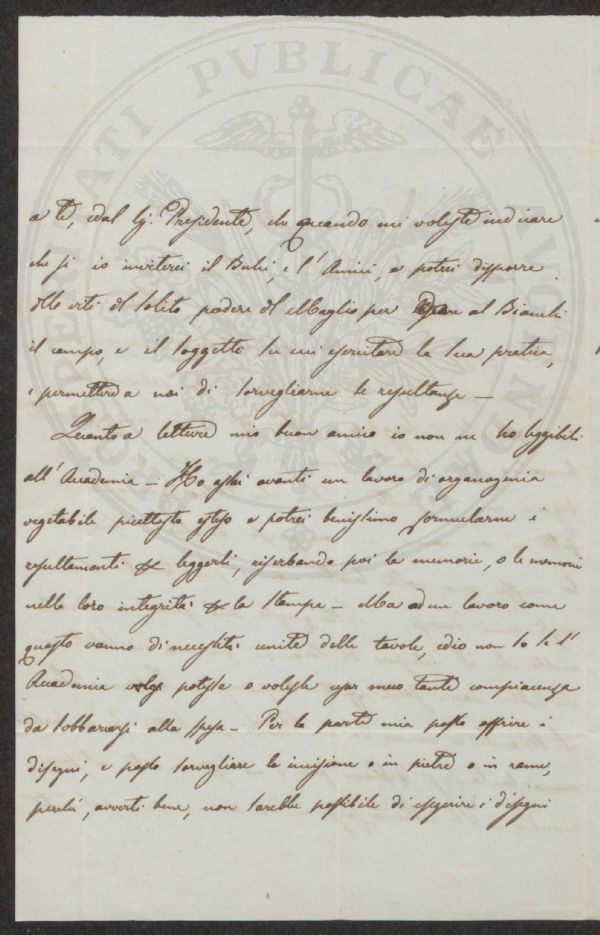 PROSPERITATI PVBLICAE AVGENDAE
a te, e dal Sig. Presidente, che quando mi voleste indicare
che si io inviterei il Buhi, e l'Amici, e potrei disporre
olle orti del solito podere del Maglio per dare al Bianchi
il campo, e il soggetto su cui esercitare la sua pratica,
e permettere a noi di sorvegliarne le resultanze —
Quanto a letture mio buon amico io non ne ho leggibili
all'Accademia — Ho assai avanti un lavoro di organogenia
vegetabile piuttosto esteso e potrei benissimo formularne i
resultamenti & leggerli, riserbando poi la memoria, o le memorie
nella loro integrità & la stampa — Ma ad un lavoro come
questo vanno di necessità unite delle tavole, ed io non so se l'
Accademia potesse o volesse usar meco tanta compiacenza
da sobbarcarsi alla spesa — Per la parte mia posso offrire i
disegni, e posso sorvegliare la incisione o in pietra o in rame,
perché, avverti bene, non sarebbe possibile di eseguire i disegni